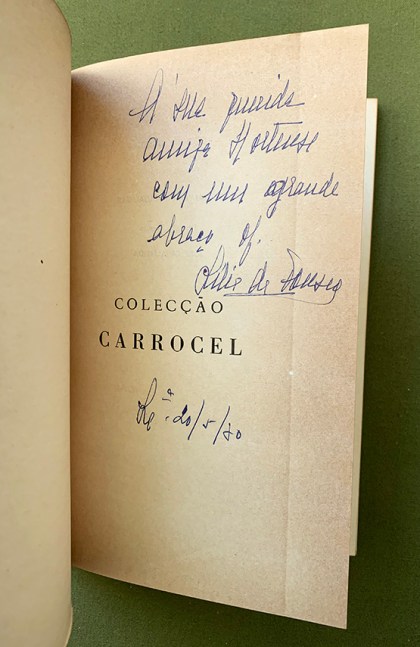 À sua querida
amiga Hortense
com um grande
abraço of.
de Fonseca
COLECÇÃO
CARROCEL
20/5/70